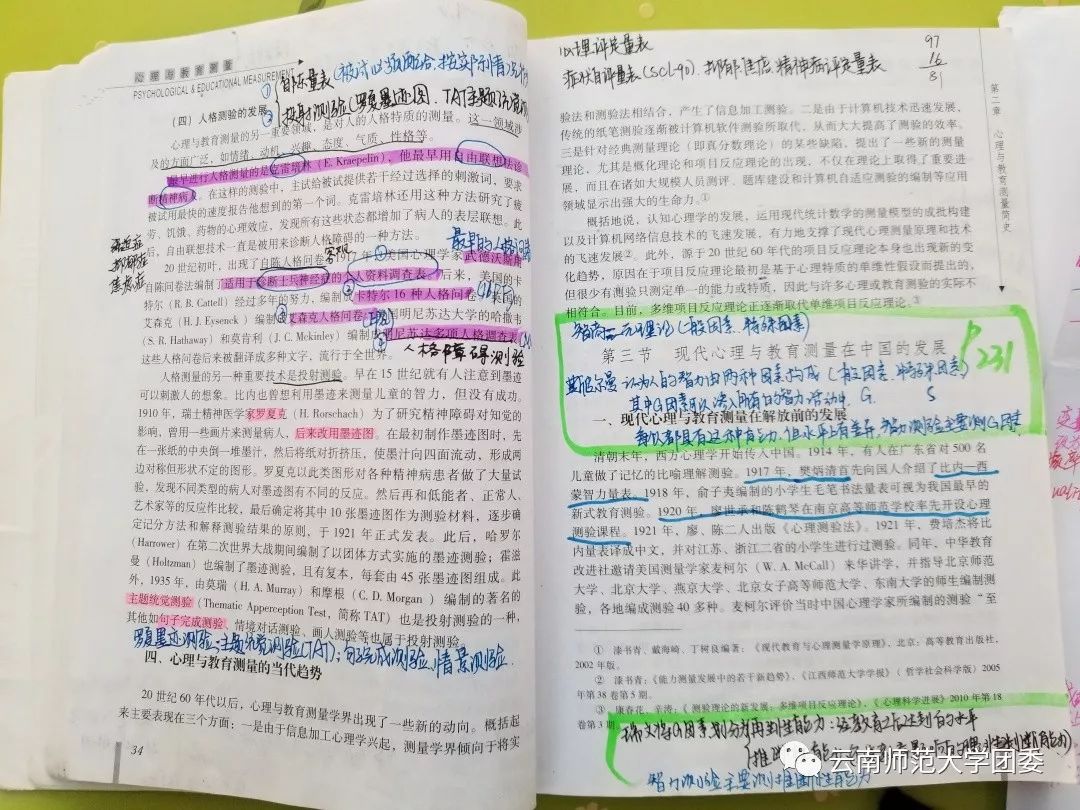 心理与教育测量
PSYCHOLOGICAL & EDUCATIONAL MEASUREMENT
①自陈量表(被试
②投射测验(罗夏墨迹图、TAT主题统觉测
(四)人格测量的发展
心理与教育测量的另一重要领域,是对人的人格特质的测量。这一领域涉
及的方面广泛,如情绪、动机、兴趣、态度、气质、性格等。
最早进行人格测量的是克雷培林(E. Kraepelin),他最早用自由联想法诊
断精神病人。在这样的测验中,主试给被试提供若干经过选择的刺激词,要求
被试用最快的速度报告他想到的第一个词。克雷培林还用这种方法研究了疲
劳、饥饿、药物的心理效应,发现所有这些状态都增加了病人的表层联想。此
后,自由联想技术一直是被用来诊断人格障碍的一种方法。
强迫症
抑郁症
焦虑症
最早的人格问卷
客观
20世纪初叶,出现了自陈人格问卷。1917年,美国心理学家武德沃斯用
自陈问卷法编制了适用于诊断士兵神经症的个人资料调查表。后来,美国的卡
特尔(R. B. Cattell)经过多年的努力,编制成卡特尔16种人格问卷,英国的
艾森克(H. J. Eysenck)编制成艾森克人格问卷,美国明尼苏达大学的哈撒韦
(S. R. Hathaway)和莫肯利(J. C. Mckinley)编制成明尼苏达多项人格调查表,
这些人格问卷后来被翻译成多种文字,流行于全世界。
人格障碍测验
人格测量的另一种重要技术是投射测验。早在15世纪就有人注意到墨迹
可以刺激人的想象。比内也曾想利用墨迹来测量儿童的智力,但没有成功。
1910年,瑞士精神医学家罗夏克(H. Rorschach)为了研究精神障碍对知觉的
影响,曾用一些画片来测量病人,后来改用墨迹图。在最初制作墨迹图时,先
在一张纸的中央倒一堆墨汁,然后将纸对折挤压,使墨汁向四面流动,形成两
边对称但形状不定的图形。罗夏克以此类图形对各种精神病患者做了大量试
验,发现不同类型的病人对墨迹图有不同的反应。然后再和低能者、正常人、
艺术家等的反应作比较,最后确定将其中10张墨迹作为测验材料,逐步确
定记分方法和解释测验结果的原则,于1921年正式发表。此后,哈罗尔
(Harrower)在第二次世界大战期间编制了以团体方式实施的墨迹测验;霍滋
曼(Holtzman)也编制了墨迹测验,且有复本,每套由45张墨迹图组成。此
外,1935年,由莫瑞(H. A. Murray)和摩根(C. D. Morgan)编制的著名的
主题统觉测验(Thematic Apperception Test,简称TAT)也是投射测验的一种,
其他如句子完成测验、情境对话测验、画人测验等也属于投射测验。
罗夏墨迹测验、主题统觉测验(TAT)、句子完成测验、情景测验.
四、心理与教育测量的当代趋势
20世纪60年代以后,心理与教育测量学界出现了一些新的动向。概括起
来主要表现在三个方面:一是由于信息加工心理学兴起,测量学界倾向于将实
34
心理评定量表
症状自评量表(SCL-90)、抑郁、焦虑、精神病评定量表
97
16
81
第二章 心理与教育测量简史
验法和测验法相结合,产生了信息加工测验。二是由于计算机技术迅速发展,
传统的纸笔测验逐渐被计算机软件测验所取代,从而大大提高了测验的效率。
三是针对经典测量理论(即真分数理论)的某些缺陷,提出了一些新的测量
理论,尤其是概化理论和项目反应理论的出现,不仅在理论上取得了重要进
展,而且在诸如大规模人员测评、题库建设和计算机自适应测验的编制等应用
领域显示出强大的生命力。①
概括地说,认知心理学的发展,运用现代统计数学的测量模型的成批构建
以及计算机网络信息技术的飞速发展,有力地支撑了现代心理测量原理和技术
的飞速发展②。此外,源于20世纪60年代的项目反应理论本身也出现新的变
化趋势,原因在于项目反应理论最初是基于心理特质的单维性假设而提出的,
但很少有测验只测定单一的能力或特质,因此与许多心理或教育测验的实际不
相符合。目前,多维项目反应理论正逐渐取代单维项目反应理论。③
智商二元理论(一般因素、特殊因素)
第三节 现代心理与教育测量在中国的发展
P231
斯皮尔曼认为人的智力由两种因素构成(一般因素、特殊因素)
其中G因素可以渗入所有的智力活动中 G. S
一、现代心理与教育测量在解放前的发展
每个人都具有这种能力,但水平上有差异,智力测验主要测G因素
清朝末年,西方心理学开始传入中国。1914年,有人在广东省对500名
儿童做了记忆的比喻理解测验。1917年,樊炳清首先向国人介绍了比内—西
蒙智力量表。1918年,俞子夷编制的小学生毛笔书法量表可视为我国最早的
新式教育测验。1920年,廖世承和陈鹤琴在南京高等师范学校率先开设心理
测验课程。1921年,廖、陈二人出版《心理测验法》。1921年,费培杰将比
内量表译成中文,并对江苏、浙江二省的小学生进行过测验。同年,中华教育
改进社邀请美国测量学家麦柯尔(W. A. McCall)来华讲学,并指导北京师范
大学、北京大学、燕京大学、北京女子高等师范大学、东南大学的师生编制测
验,各地编成测验40多种。麦柯尔评价当时中国心理学家所编制的测验“至
① 漆书青、戴海崎、丁树良编著:《现代教育与心理测量学原理》,北京:高等教育出版社,
2002年版。
② 漆书青:《能力测量发展中的若干新趋势》,《江西师范大学学报》(哲学社会科学版)2005
年第38卷第5期。
③ 康春花、辛涛:《测验理论的新发展:多维项目反应理论》,《心理科学进展》2010年第18
卷第3期
云南师范大学团委